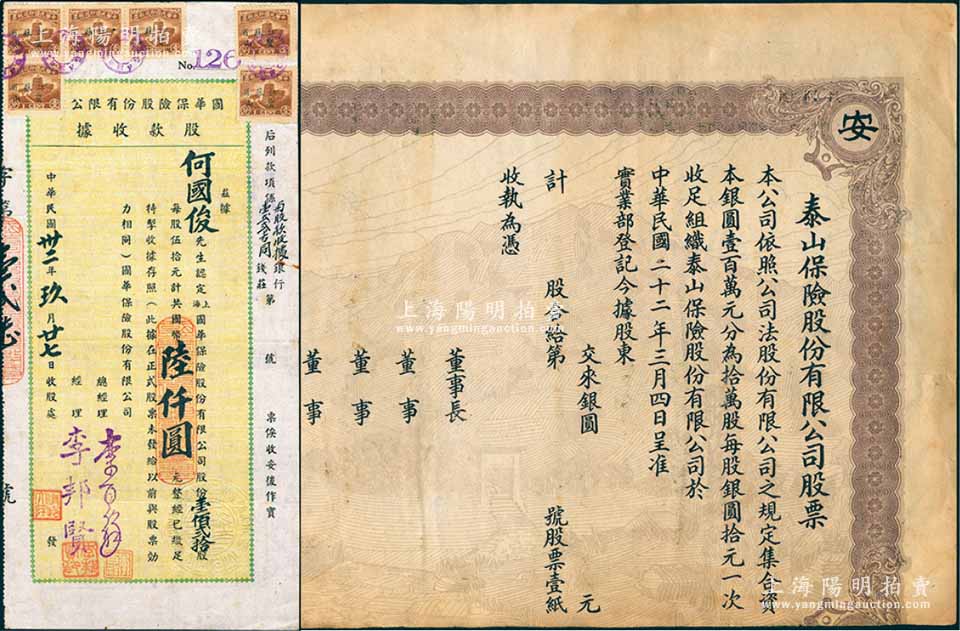 No. 126
國華保險股份有限公
股款收據
茲據
何國俊先生認定上海國華保險股份有限公司股份壹佰貳拾股
每股伍拾元計共國幣陸仟圓元整經已繳足
特掣收據存照(此據在正式股票未發給以前與股票効
力相同)國華保險股份有限公司
總經理
經理 李邦賢
發
中華民國卅二年玖月廿七日收股處
后列款項係
銀行
錢莊
第
號
票俟收妥後作實
字第
號
安
泰山保險股份有限公司股票
本公司依照公司法股份有限公司之規定集合資
本銀圓壹百萬元分為拾萬股每股銀圓拾元一次
收足組織泰山保險股份有限公司於
中華民國二十二年三月四日呈准
實業部登記今據股東
交來銀圓 元
計 股合給第 號股票壹紙
收執為憑
董事長
董事
董事
董事
上海陽明拍賣
上海陽明拍賣
www.yangmingauction.com
上海陽明拍賣
www.yangmingauction.com